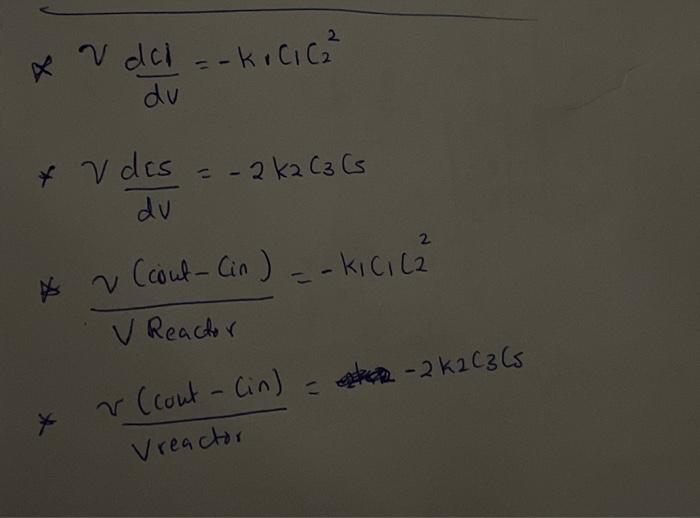 * ν dc1/dv = -k1C1C2^2
* ν dcs/dv = -2k2C3Cs
* ν(cout-Cin)/V Reactor = -k1C1C2^2
* ν(cout-Cin)/Vreactor = -2k2C3Cs